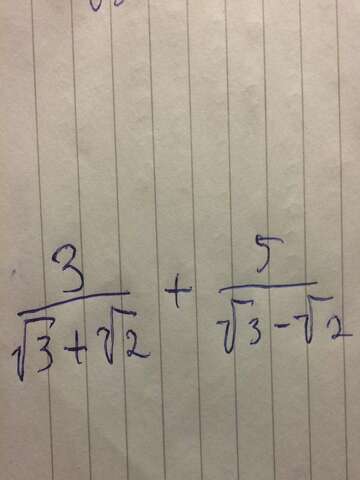 3/(√3+√2) + 5/(√3-√2)